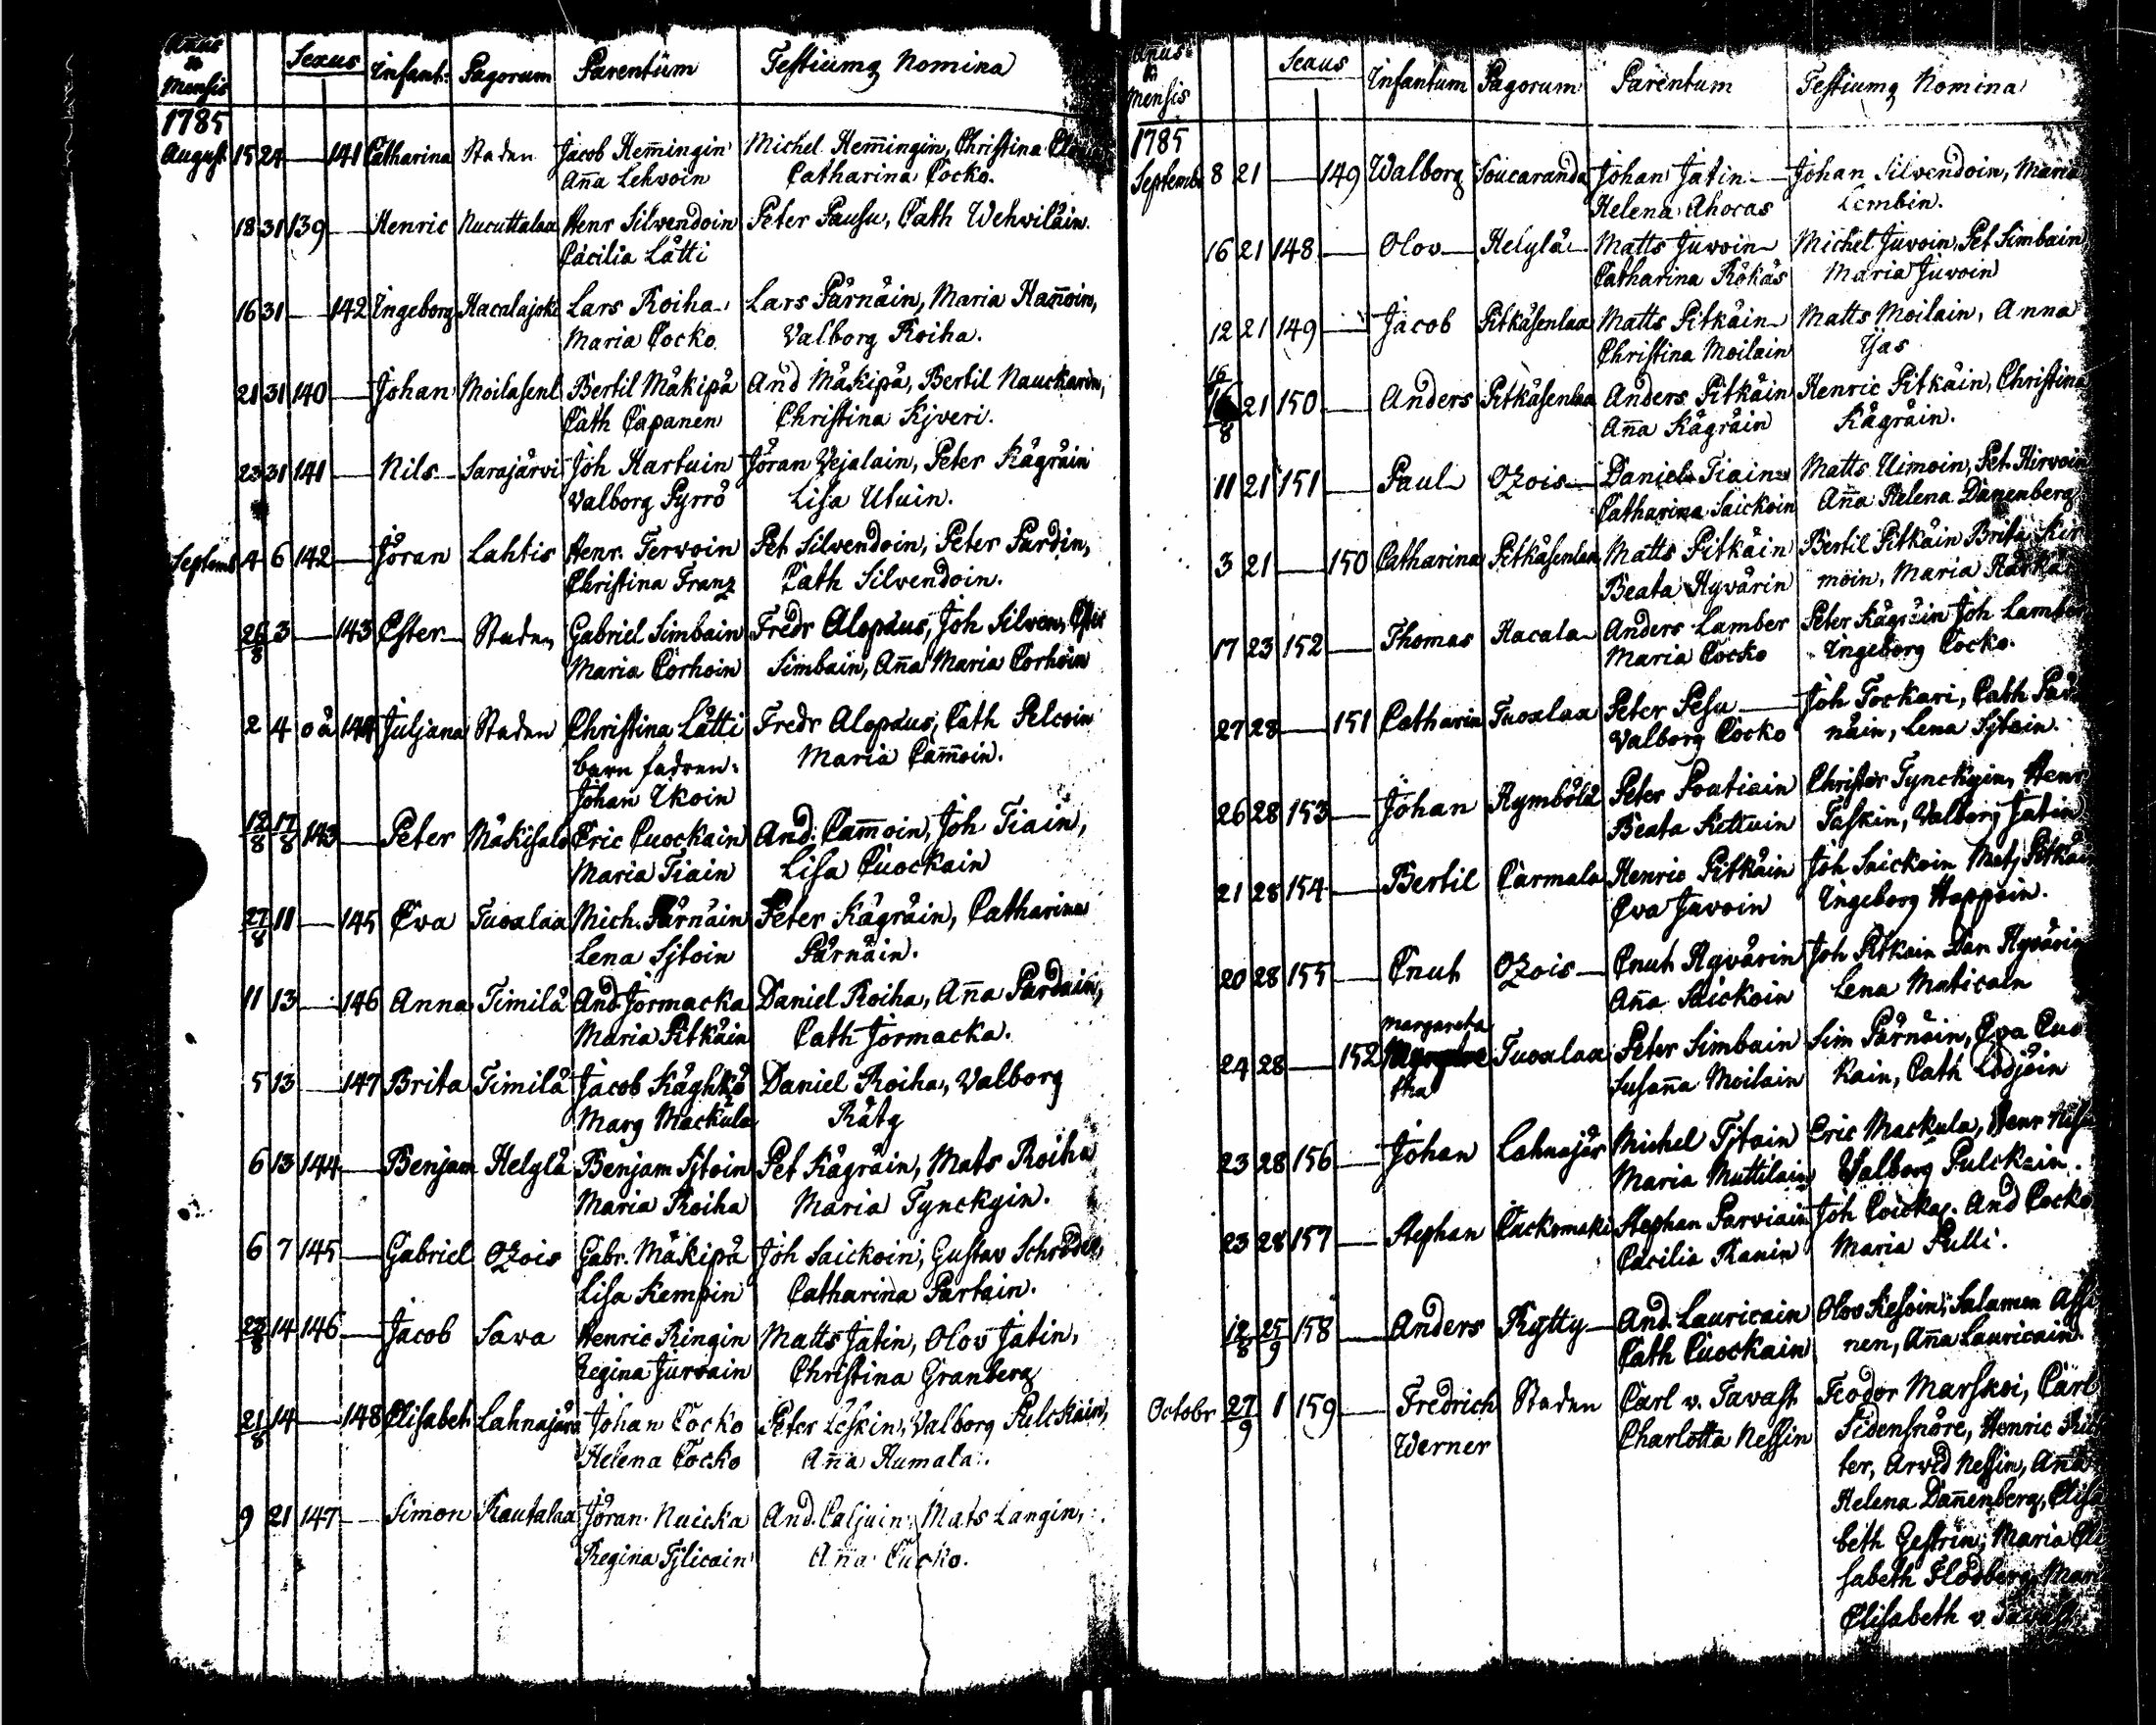 Anus & Mensis Sexus Infant: Pagorum Parentum Testiumq Nomina
1785
August 15 24 — 141 Catharina Staden Jacob Hem̄ingin Michel Hem̄ingin, Christina
An̄a Lehvoin Catharina Cocko.
18 31 139 — Henric Nucuttalaa Henr Silvendoin Peter Pausu, Cath Wehviläin.
Cäcilia Lätti
16 31 — 142 Ingeborg Hacalajoki Lars Roiha Lars Pärnäin, Maria Han̄oin,
Maria Cocko Valborg Roiha.
21 31 140 — Johan Moilasenl Bertil Mäkipä And Mäkipä, Bertil Nauckarin,
Cath Capanen Christina Kjveri.
23 31 141 — Nils Sarajärvi Joh Hartuin Jöran Vejalain, Peter Kägräin
Valborg Pyrrö Lisa Utuin.
Septemb 4 6 142 — Jöran Lahtis Henr. Tervoin Pet Silvendoin, Peter Pardin,
Christina Franz Cath Silvendoin.
26/8 3 — 143 Ester Staden Gabriel Simbain Fredr Alopäus, Joh Silven,
Maria Corhoin Simbain, An̄a Maria Corhoin
2 4 oä 144 Juljana Staden Christina Lätti Fredr Alopäus, Cath Pelcoin
barn fadren: Maria Cam̄oin.
Johan Ikoin
12/8 17/8 143 — Peter Mäkisalo Eric Cuockain And: Cam̄oin, Joh Tiain,
Maria Tiain Lisa Cuockain
27/8 11 — 145 Eva Tuoxlaa Mich. Pärnäin Peter Kägräin, Catharina
Lena Sjtoin Pärnäin.
11 13 — 146 Anna Timilä And. Jormacka Daniel Roiha, An̄a Pardain,
Maria Pitkäin Cath Jormacka.
5 13 — 147 Brita Timilä Jacob Käghkö Daniel Roiha, Valborg
Marg Mackula Räty
6 13 144 — Benjam Helylä Benjam Sjtoin Pet Kägräin, Mats Roiha
Maria Roiha Maria Tynckyin.
6 7 145 — Gabriel Ozois Gabr. Mäkipä Joh Saickoin, Gustav Schröder,
Lisa Kempin Catharina Partain.
23/8 14 146 — Jacob Sava Henric Ringin Matts Jatin, Olov Jatin,
Regina Jurvain Christina Granberg
21/8 14 — 148 Elisabet Lahnajärvi Johan Cocko Peter Leskin, Valborg Pulckain,
Helena Cocko An̄a Humala.
9 21 147 — Simon Rautalaa Jöran Nuicka And. Caljuin, Mats Langin,
Regina Tjlicain An̄a Cucko.
Anus & Mensis Sexus Infantum Pagorum Parentum Testiumq Nomina
1785
Septemb 8 21 — 149 Walborg Soucaranda Johan Jatin Johan Silvendoin, Maria
Helena Ahocas Lembin.
16 21 148 — Olov Helylä Matts Juvoin Michel Juvoin, Pet Simbain,
Catharina Rökäs Maria Juvoin
12 21 149 — Jacob Pitkäsenlaa Matts Pitkäin Matts Moilain, Anna
Christina Moilain Ijäs
16
/8 21 150 — Anders Pitkäsenlaa Anders Pitkäin Henric Pitkäin, Christina
An̄a Kägräin Kägräin.
11 21 151 — Paul Ozois Daniel Tiain Matts Uimoin, Pet. Hirvoin
Catharina Saickoin An̄a Helena Danenberg
3 21 — 150 Catharina Pitkäsenlaa Matts Pitkäin Bertil Pitkäin Brita Kir
Beata Hyvärin moin, Maria
17 23 152 — Thomas Hacala Anders Lamber Peter Kägräin Joh Lamber
Maria Cocko Ingeborg Cocko.
27 28 — 151 Catharin Tuoxlaa Peter Pesu Joh Tockari, Cath Pär
Valborg Cocko näin, Lena Sjtoin.
26 28 153 — Johan Rymbölä Peter Poutiain Christer Tynckyin, Henr
Beata Kettuin Paskin, Valborg Jatin
21 28 154 — Bertil Carmala Henric Pitkäin Joh Saickoin Mats Pitkäin
Eva Juvoin Ingeborg Happoin.
20 28 155 — Cnut Ozois Cnut Hyvärin Joh Pitkäin Dan Hyvärin
An̄a Saickoin Lena Maticain
Margareta
24 28 — 152 tha Tuoxlaa Peter Simbain Sim Pärnäin, Eva Cuo
Susan̄a Moilain kain, Cath Lodjoin
23 28 156 — Johan Lahnajär Michel Tjtoin Eric Mackula, Henr
Maria Muttilain Valborg Pulckain.
23 28 157 — Stephan Cuckomäki Stephan Parviain Joh And Cocko
Cäcilia Ranin Maria Pulli.
12/8 25/9 158 — Anders Rytty And. Lauricain Olov Kesoin, Salamon Assi
Cath Cuockain nen, An̄a Lauricain.
Octobr 27/9 1 159 — Fredrich Staden Carl v. Tavast Feodor Marskoi, Carl
Werner Charlotta Nessin Sidensnöre, Henric
ter, Arvid Nessin, An̄a
Helena Dan̄enberg, Elisa
beth Gestrin, Maria Eli
sabeth Flodberg, Mar
Elisabeth v. Tavast